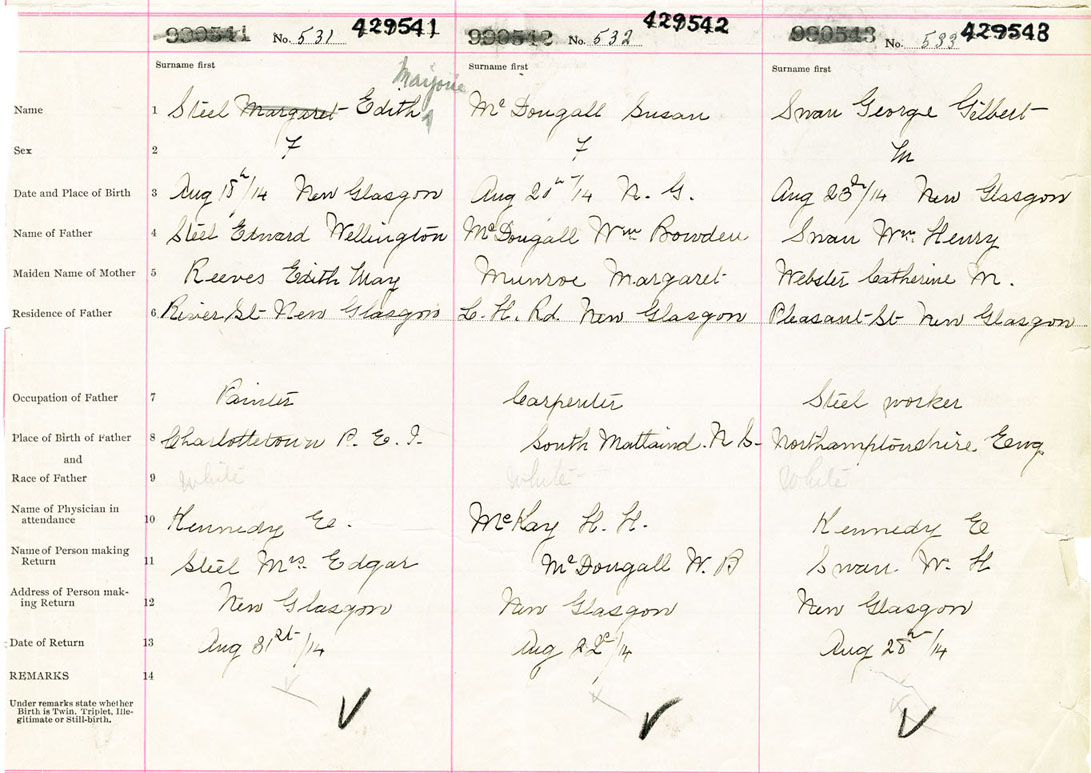 990541 No. 531 429541 990542 No. 532 429542 990543 No. 533 429543
Surname first Surname first Surname first
Marjorie
Name 1 Steel Margaret Edith McDougall Susan Swan George Gilbert
Sex 2 F F M
Date and Place of Birth 3 Aug 18th/14 New Glasgow Aug 21st/14 N. G. Aug 23rd/14 New Glasgow
Name of Father 4 Steel Edward Wellington McDougall Wm Bowden Swan Wm Henry
Maiden Name of Mother 5 Reeves Edith May Munroe Margaret Webster Catherine M.
Residence of Father 6 River St New Glasgow L. H. Rd. New Glasgow Pleasant St New Glasgow
Occupation of Father 7 Painter Carpenter Steel worker
Place of Birth of Father 8 Charlottetown P. E. I. South Maitland. N S- Northamptonshire. Eng
and
Race of Father 9 White White White
Name of Physician in
attendance 10 Kennedy E. McKay H. H. Kennedy E
Name of Person making
Return 11 Steel Mrs Edgar McDougall W. B Swan W. H
Address of Person mak-
ing Return 12 New Glasgow New Glasgow New Glasgow
Date of Return 13 Aug 31st/14 Aug 22/14 Aug 28th/14
REMARKS 14
Under remarks state whether
Birth is Twin, Triplet, Ille-
gitimate or Still-birth.